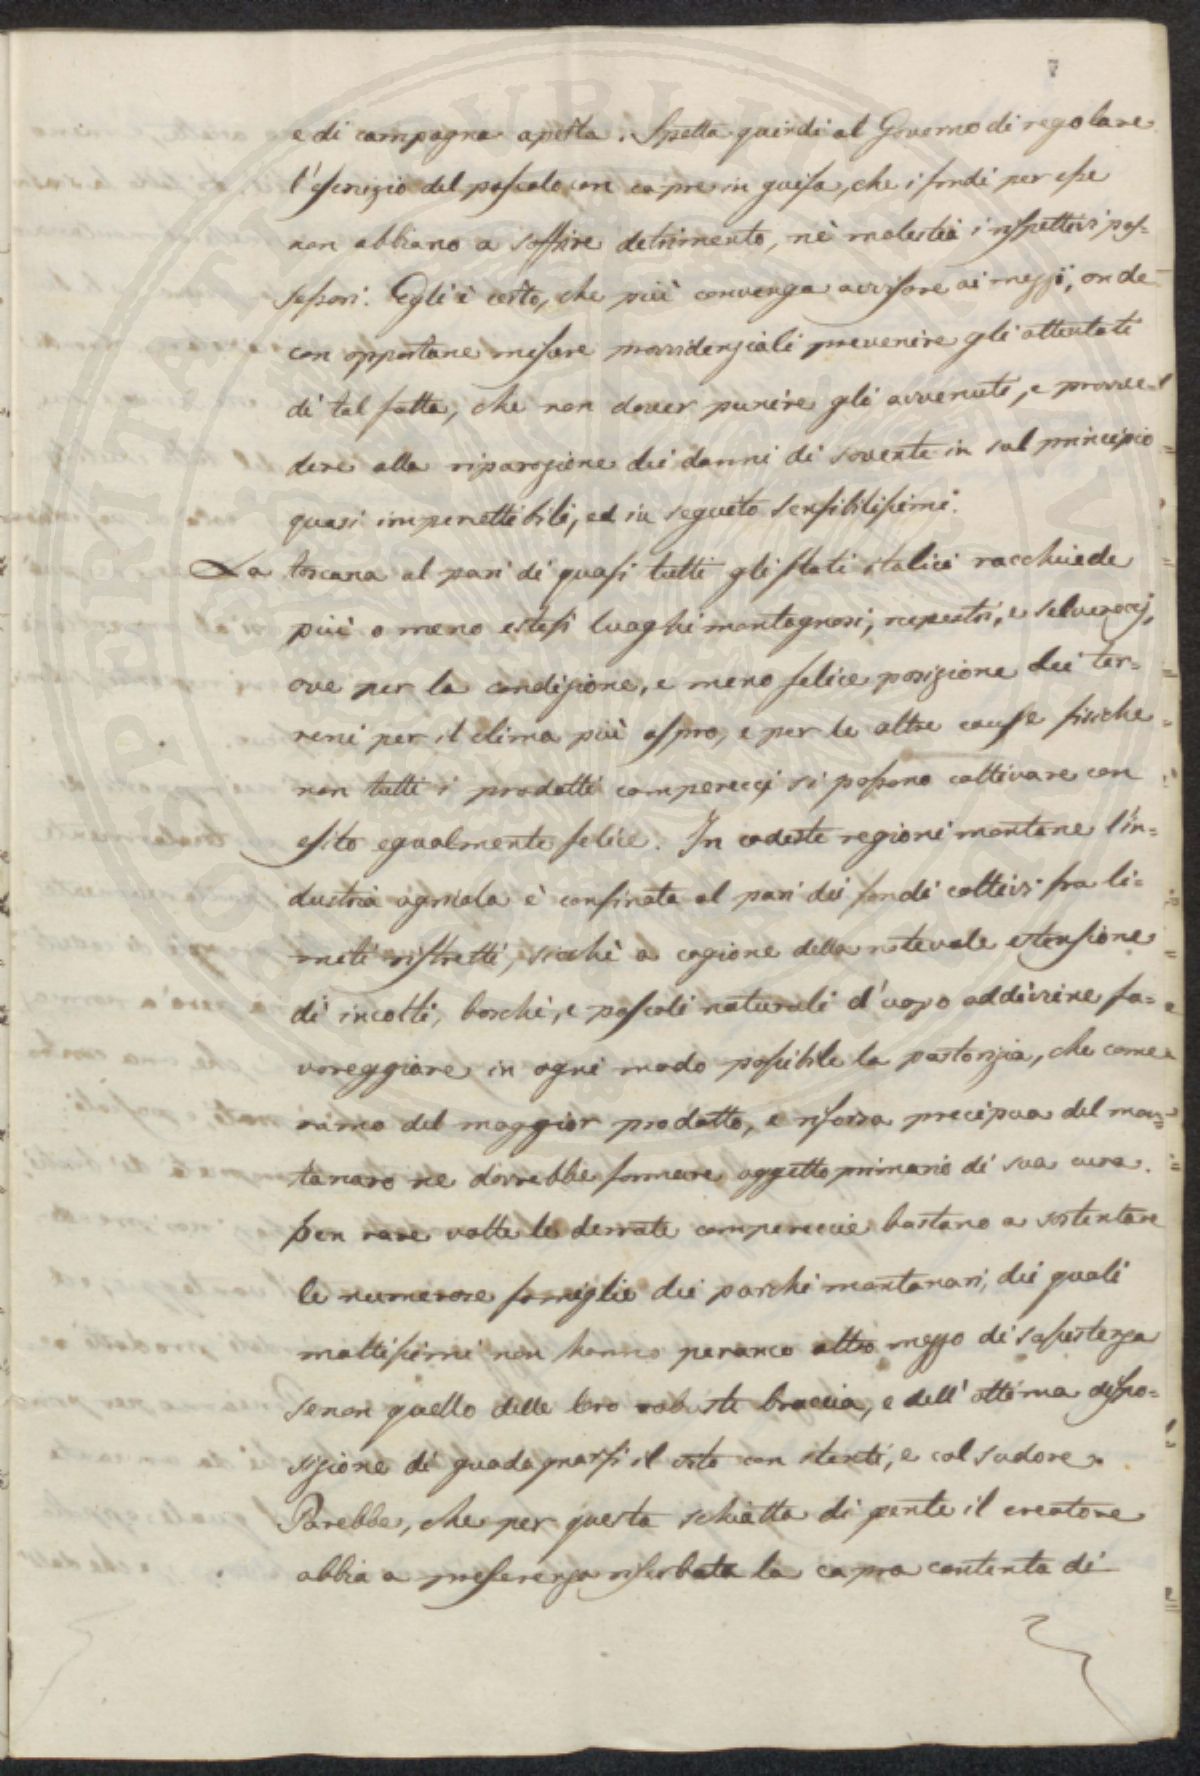 7
e di campagna aperta. Spetta quindi al Governo di regolare
l'esercizio del pascolo con capre in guisa, che i fondi per esse
non abbiano a soffrire detrimento, nè molestia i rispettivi pos=
sessori. Egli è certo, che più convenga avvisare ai mezzi, onde
con opportune misure provvidenziali prevenire gli attentati
di tal fatta, che non dover punire gli avvenuti, e provve=
dere alla riparazione dei danni di sovente in sul principio
quasi impercettibili, ed in seguito sensibilissimi.
La toscana al pari di quasi tutti gli stati italici racchiude
più o meno estesi luoghi montagnosi, rupestri, e selverecci,
ove per la condizione, e meno felice posizione dei ter=
reni per il clima più aspro, e per le altre cause fisiche
non tutti i prodotti camperecci si possono coltivare con
esito egualmente felice. In codeste regioni montane l'in=
dustria agricola è confinata al pari dei fondi coltivi fra li=
miti ristretti, sicchè a cagione della notevole estensione
di incolti, boschi, e pascoli naturali d'uopo addiviene fa=
voreggiare in ogni modo possibile la pastorizia, che come
ramo del maggior prodotto, e risorsa precipua del mon=
tanaro ne dovrebbe formare oggetto primario di sua cura.
Ben rare volte le derrate campereccie bastano a sostentare
le numerose famiglie dei parchi montanari, dei quali
moltissimi non hanno peranco altro mezzo di sussistenza
senon quello delle loro robuste braccia, e dell'ottima dispo=
sizione di guadagnarsi il vitto con stenti, e col sudore.
Parebbe, che per questa schiatta di gente il creatore
abbia a preferenza riserbata la capra contenta di